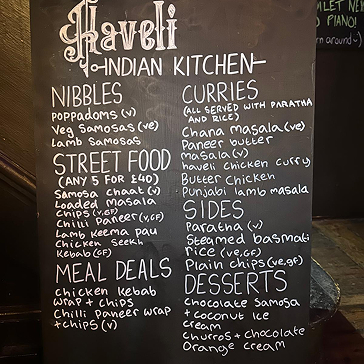 Haveli
INDIAN KITCHEN
NIBBLES
POPPADOMS (V)
Veg Samosas (ve)
Lamb Samosas
STREET FOOD
(ANY 5 FOR £40)
Samosa chaat (v)
Loaded masala
chips (v,GF)
Chilli Paneer (v,GF)
Lamb keema pau
Chicken Seekh
Kebab (GF)
MEAL DEALS
Chicken Kebab
wrap + chips
Chilli Paneer wrap
+ chips (v)
CURRIES
(ALL SERVED WITH PARATHA
AND RICE)
Chana masala (ve)
Paneer butter
masala (v)
haveli chicken curry
Butter Chicken
Punjabi lamb masala
SIDES
Paratha (v)
Steamed basmati
rice (ve,GF)
Plain chips (ve,gf)
DESSERTS
Chocolate Samosa
+ coconut ice
cream
Churros + chocolate
Orange cream
PIANO!
around